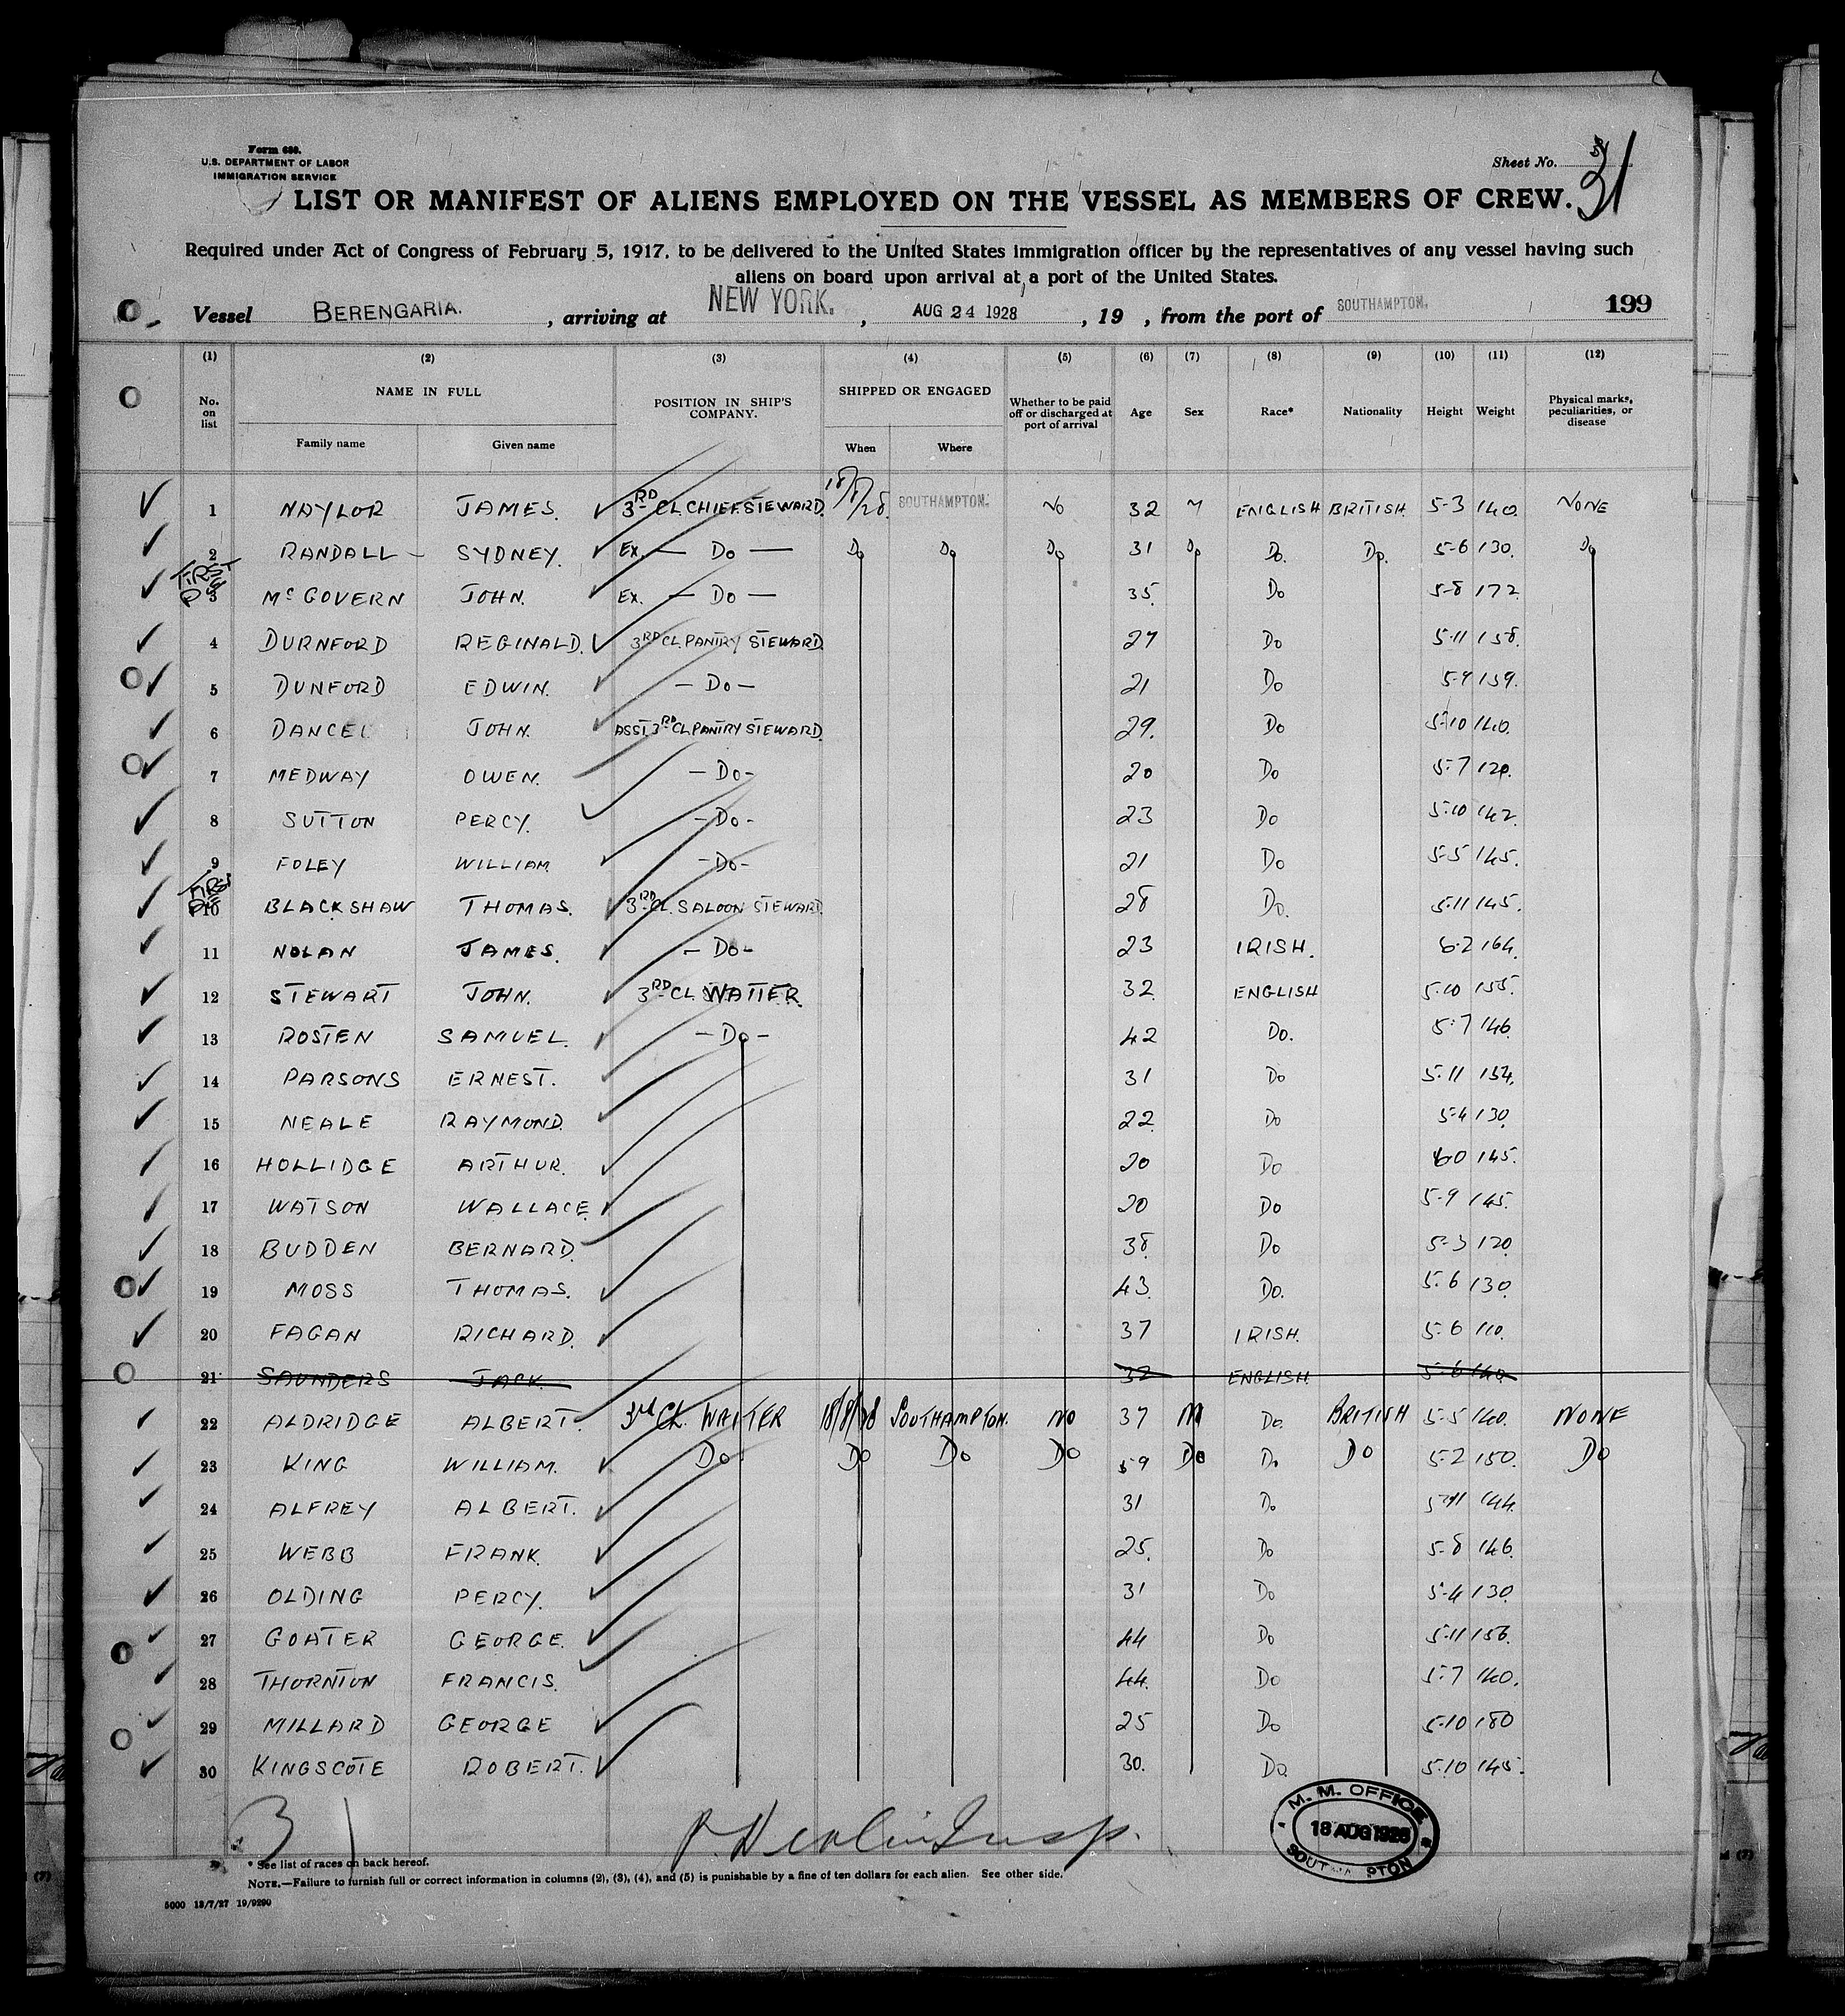 Form 680.
U.S. DEPARTMENT OF LABOR
IMMIGRATION SERVICE
Sheet No. 31
LIST OR MANIFEST OF ALIENS EMPLOYED ON THE VESSEL AS MEMBERS OF CREW.
Required under Act of Congress of February 5, 1917, to be delivered to the United States immigration officer by the representatives of any vessel having such
aliens on board upon arrival at a port of the United States.
Vessel BERENGARIA. , arriving at NEW YORK. , AUG 24 1928 , 19 , from the port of SOUTHAMPTON. 199
(1) (2) (3) (4) (5) (6) (7) (8) (9) (10) (11) (12)
No. on list NAME IN FULL POSITION IN SHIP'S COMPANY. SHIPPED OR ENGAGED Whether to be paid off or discharged at port of arrival Age Sex Race* Nationality Height Weight Physical marks, peculiarities, or disease
Family name Given name When Where
1 NAYLOR JAMES. 3RD CL. CHIEF STEWARD. 18/8/28. SOUTHAMPTON. NO 32 M ENGLISH BRITISH. 5-3 140. NONE
2 RANDALL - SYDNEY. Ex. — Do — Do Do Do 31 Do Do. Do. 5-6 130. Do
FIRST
3 McGOVERN JOHN. Ex. — Do — 35. Do 5-8 172.
4 DURNFORD REGINALD. 3RD CL. PANTRY STEWARD. 27 Do 5-11 158.
5 DUNFORD EDWIN. — Do — 21 Do 5-9 159.
6 DANCE JOHN. ASST. 3RD CL. PANTRY STEWARD. 29. Do 5-10 140.
7 MEDWAY OWEN. — Do - 20 Do 5-7 120.
8 SUTTON PERCY. - Do - 23 Do 5-10 142.
9 FOLEY WILLIAM. - Do - 21 Do 5-5 145.
FIRST
10 BLACKSHAW THOMAS. 3RD CL. SALOON STEWARD. 28 Do. 5-11 145.
11 NOLAN JAMES. - Do - 23 IRISH. 6-2 164.
12 STEWART JOHN. 3RD CL. WAITER. 32. ENGLISH 5-10 155.
13 ROSTEN SAMUEL. - Do - 42 Do. 5-7 146.
14 PARSONS ERNEST. 31 Do 5-11 154.
15 NEALE RAYMOND. 22. Do 5-4 130.
16 HOLLIDGE ARTHUR. 20 Do 6-0 145.
17 WATSON WALLACE. 20 Do 5-9 145.
18 BUDDEN BERNARD. 38. Do 5-3 120.
19 MOSS THOMAS. 43. Do. 5-6 130.
20 FAGAN RICHARD. 37 IRISH. 5-6 110.
21 SAUNDERS JACK. 32 ENGLISH. 5-6 140.
22 ALDRIDGE ALBERT. 3rd CL. WAITER 18/8/28 SOUTHAMPTON. NO 37 M Do. BRITISH 5-5 140. NONE
23 KING WILLIAM. Do Do Do Do 59 Do Do Do 5-2 150. Do
24 ALFREY ALBERT. 31 Do 5-11 144.
25 WEBB FRANK. 25. Do 5-8 146.
26 OLDING PERCY. 31 Do 5-4 130.
27 GOATER GEORGE. 44 Do 5-11 156.
28 THORNTON FRANCIS. 44. Do 5-7 140.
29 MILLARD GEORGE 25 Do 5-10 180
30 KINGSCOTE ROBERT. 30. Do. 5-10 145.
M. M. OFFICE
18 AUG 1928
SOUTHAMPTON
* See list of races on back hereof.
NOTE.—Failure to furnish full or correct information in columns (2), (3), (4), and (5) is punishable by a fine of ten dollars for each alien. See other side.
5000 13/7/27 19/9290